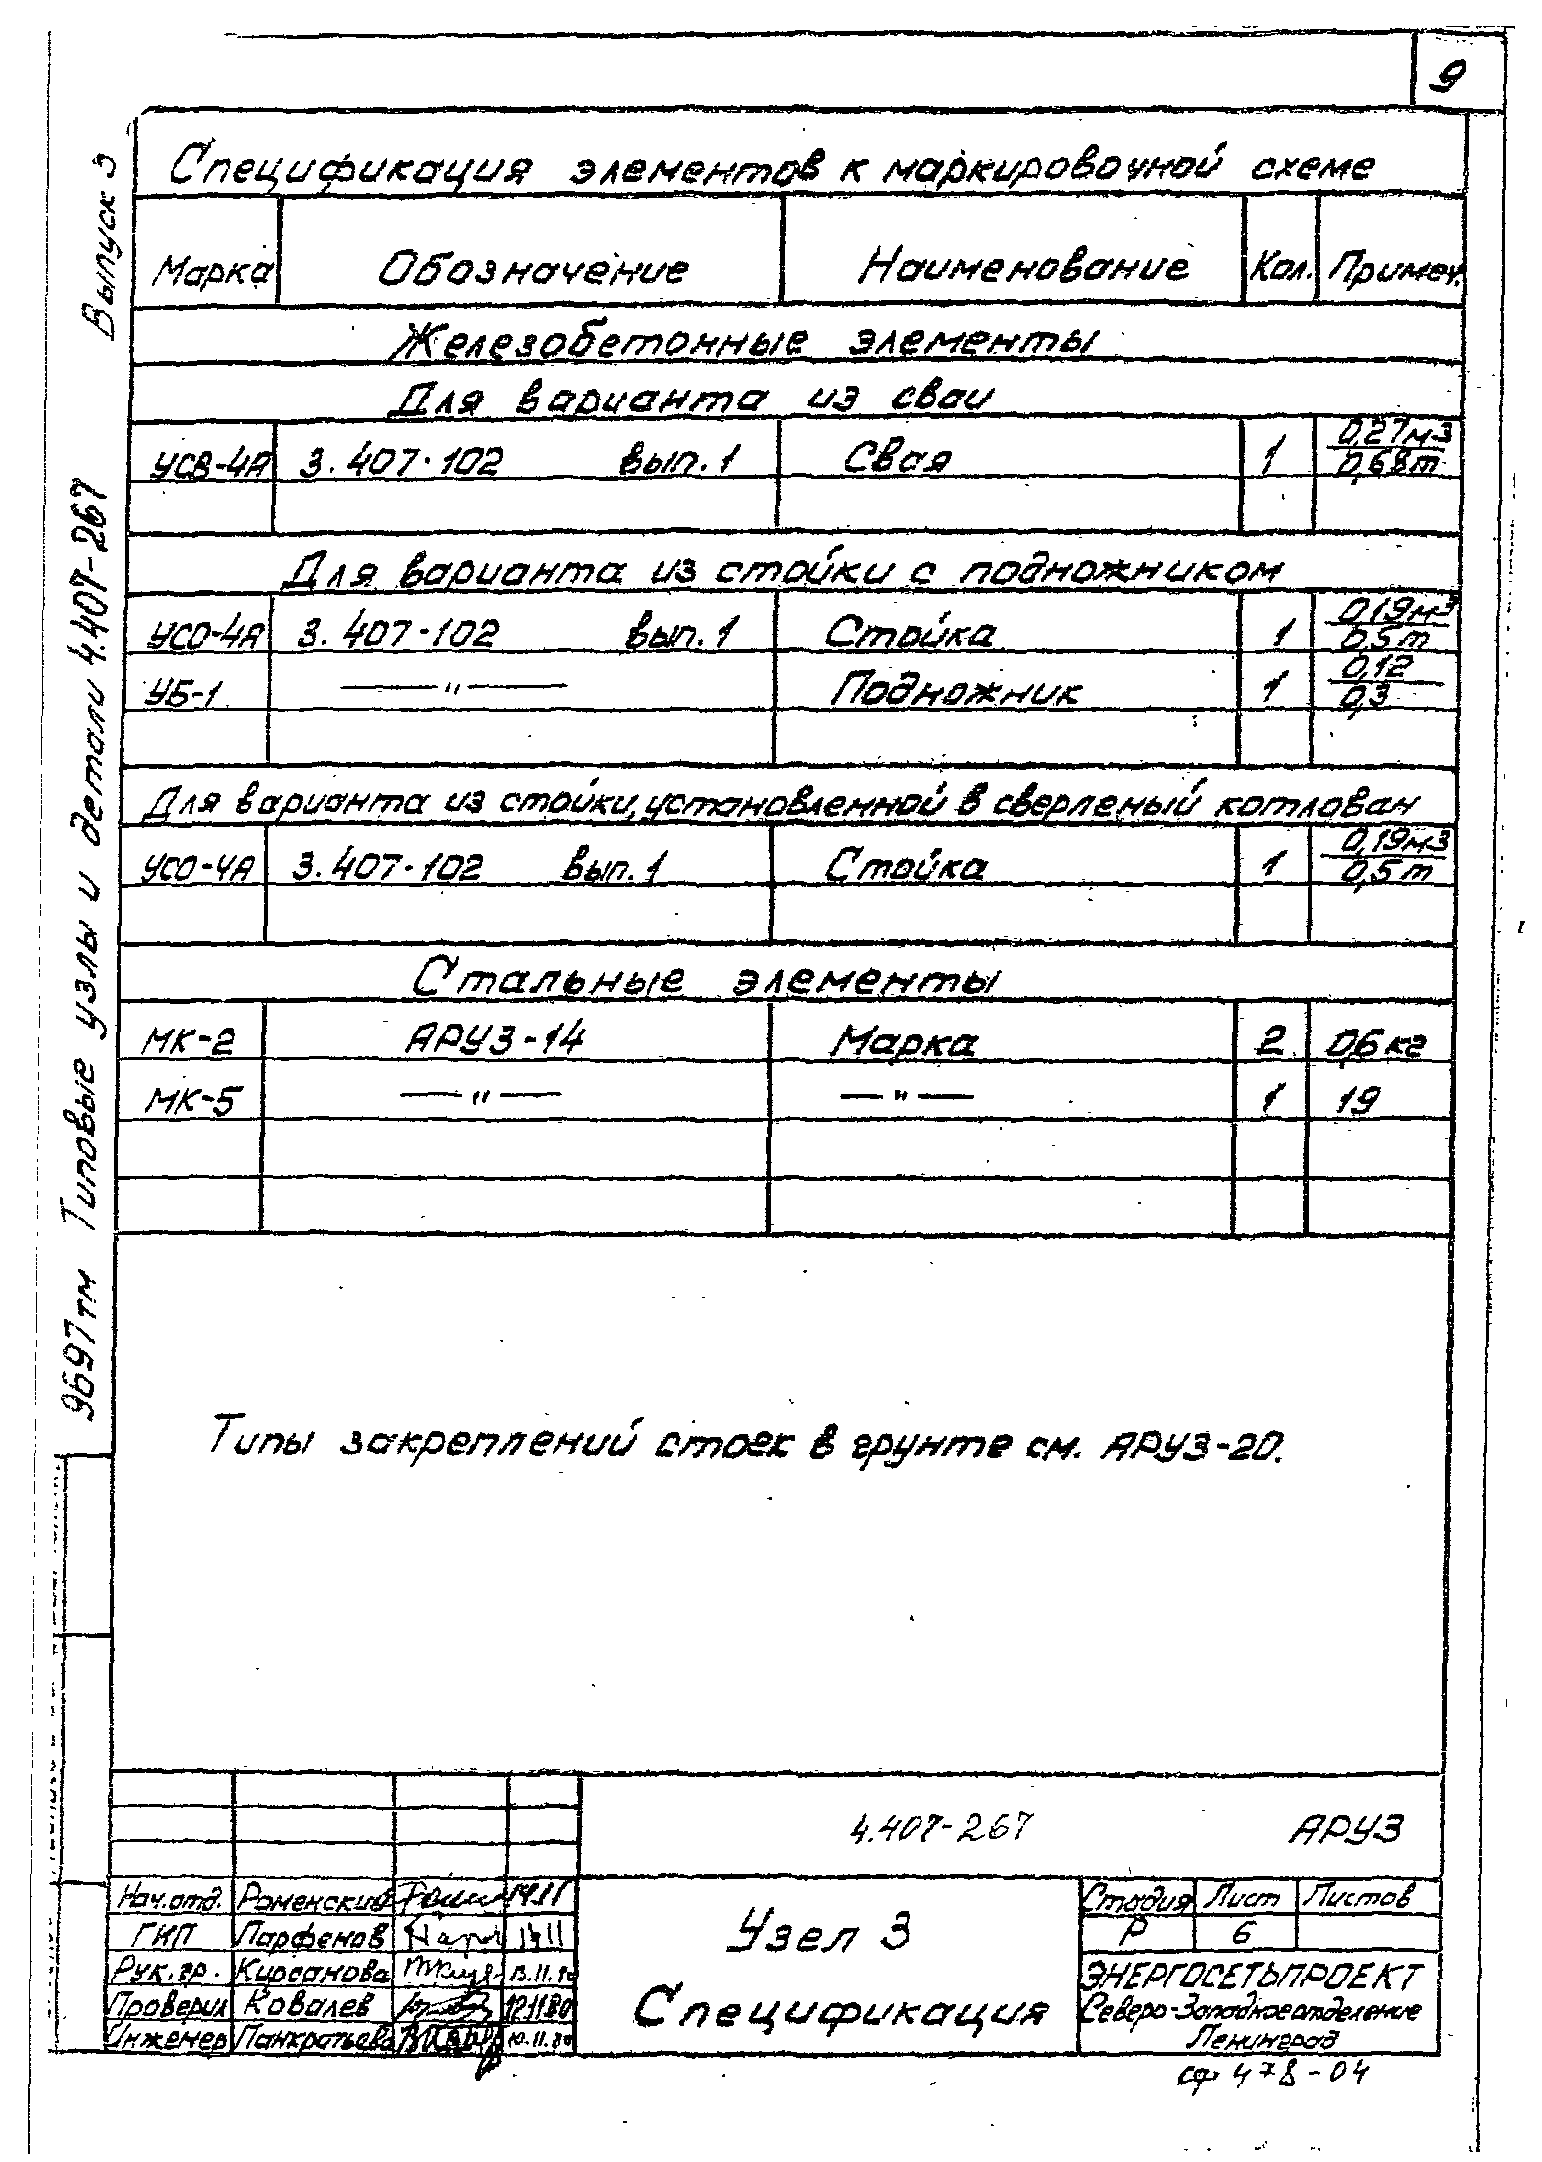 9
Спецификация элементов к маркировочной схеме
Марка Обозначение Наименование Кол. Примеч.
Железобетонные элементы
Для варианта из сваи
УСВ-4А 3.407-102 вып.1 Свая 1 0,27м3
0,68т
Для варианта из стойки с подножником
УСО-4А 3.407-102 вып.1 Стойка 1 0,19м3
0,5т
УБ-1 —"— Подножник 1 0,12
0,3
Для варианта из стойки, установленной в сверленый котлован
УСО-4А 3.407-102 вып.1 Стойка 1 0,19м3
0,5т
Стальные элементы
МК-2 АРУ3-14 Марка 2 0,6кг
МК-5 —"— —"— 1 19
Типы закреплений стоек в грунте см. АРУ3-20.
9697тм Типовые узлы и детали 4.407-267 Выпуск 3
4.407-267 АРУ3
Нач.отд. Роменский 14.11
ГИП Парфенов 14 11
Рук.гр. Кирсанова 13.11.80
Проверил Ковалев 12.11.80
Инженер Панкратьева 10.11.80
Узел 3
Спецификация
Стадия Лист Листов
Р 6
ЭНЕРГОСЕТЬПРОЕКТ
Северо-Западное отделение
Ленинград
сф 478-04